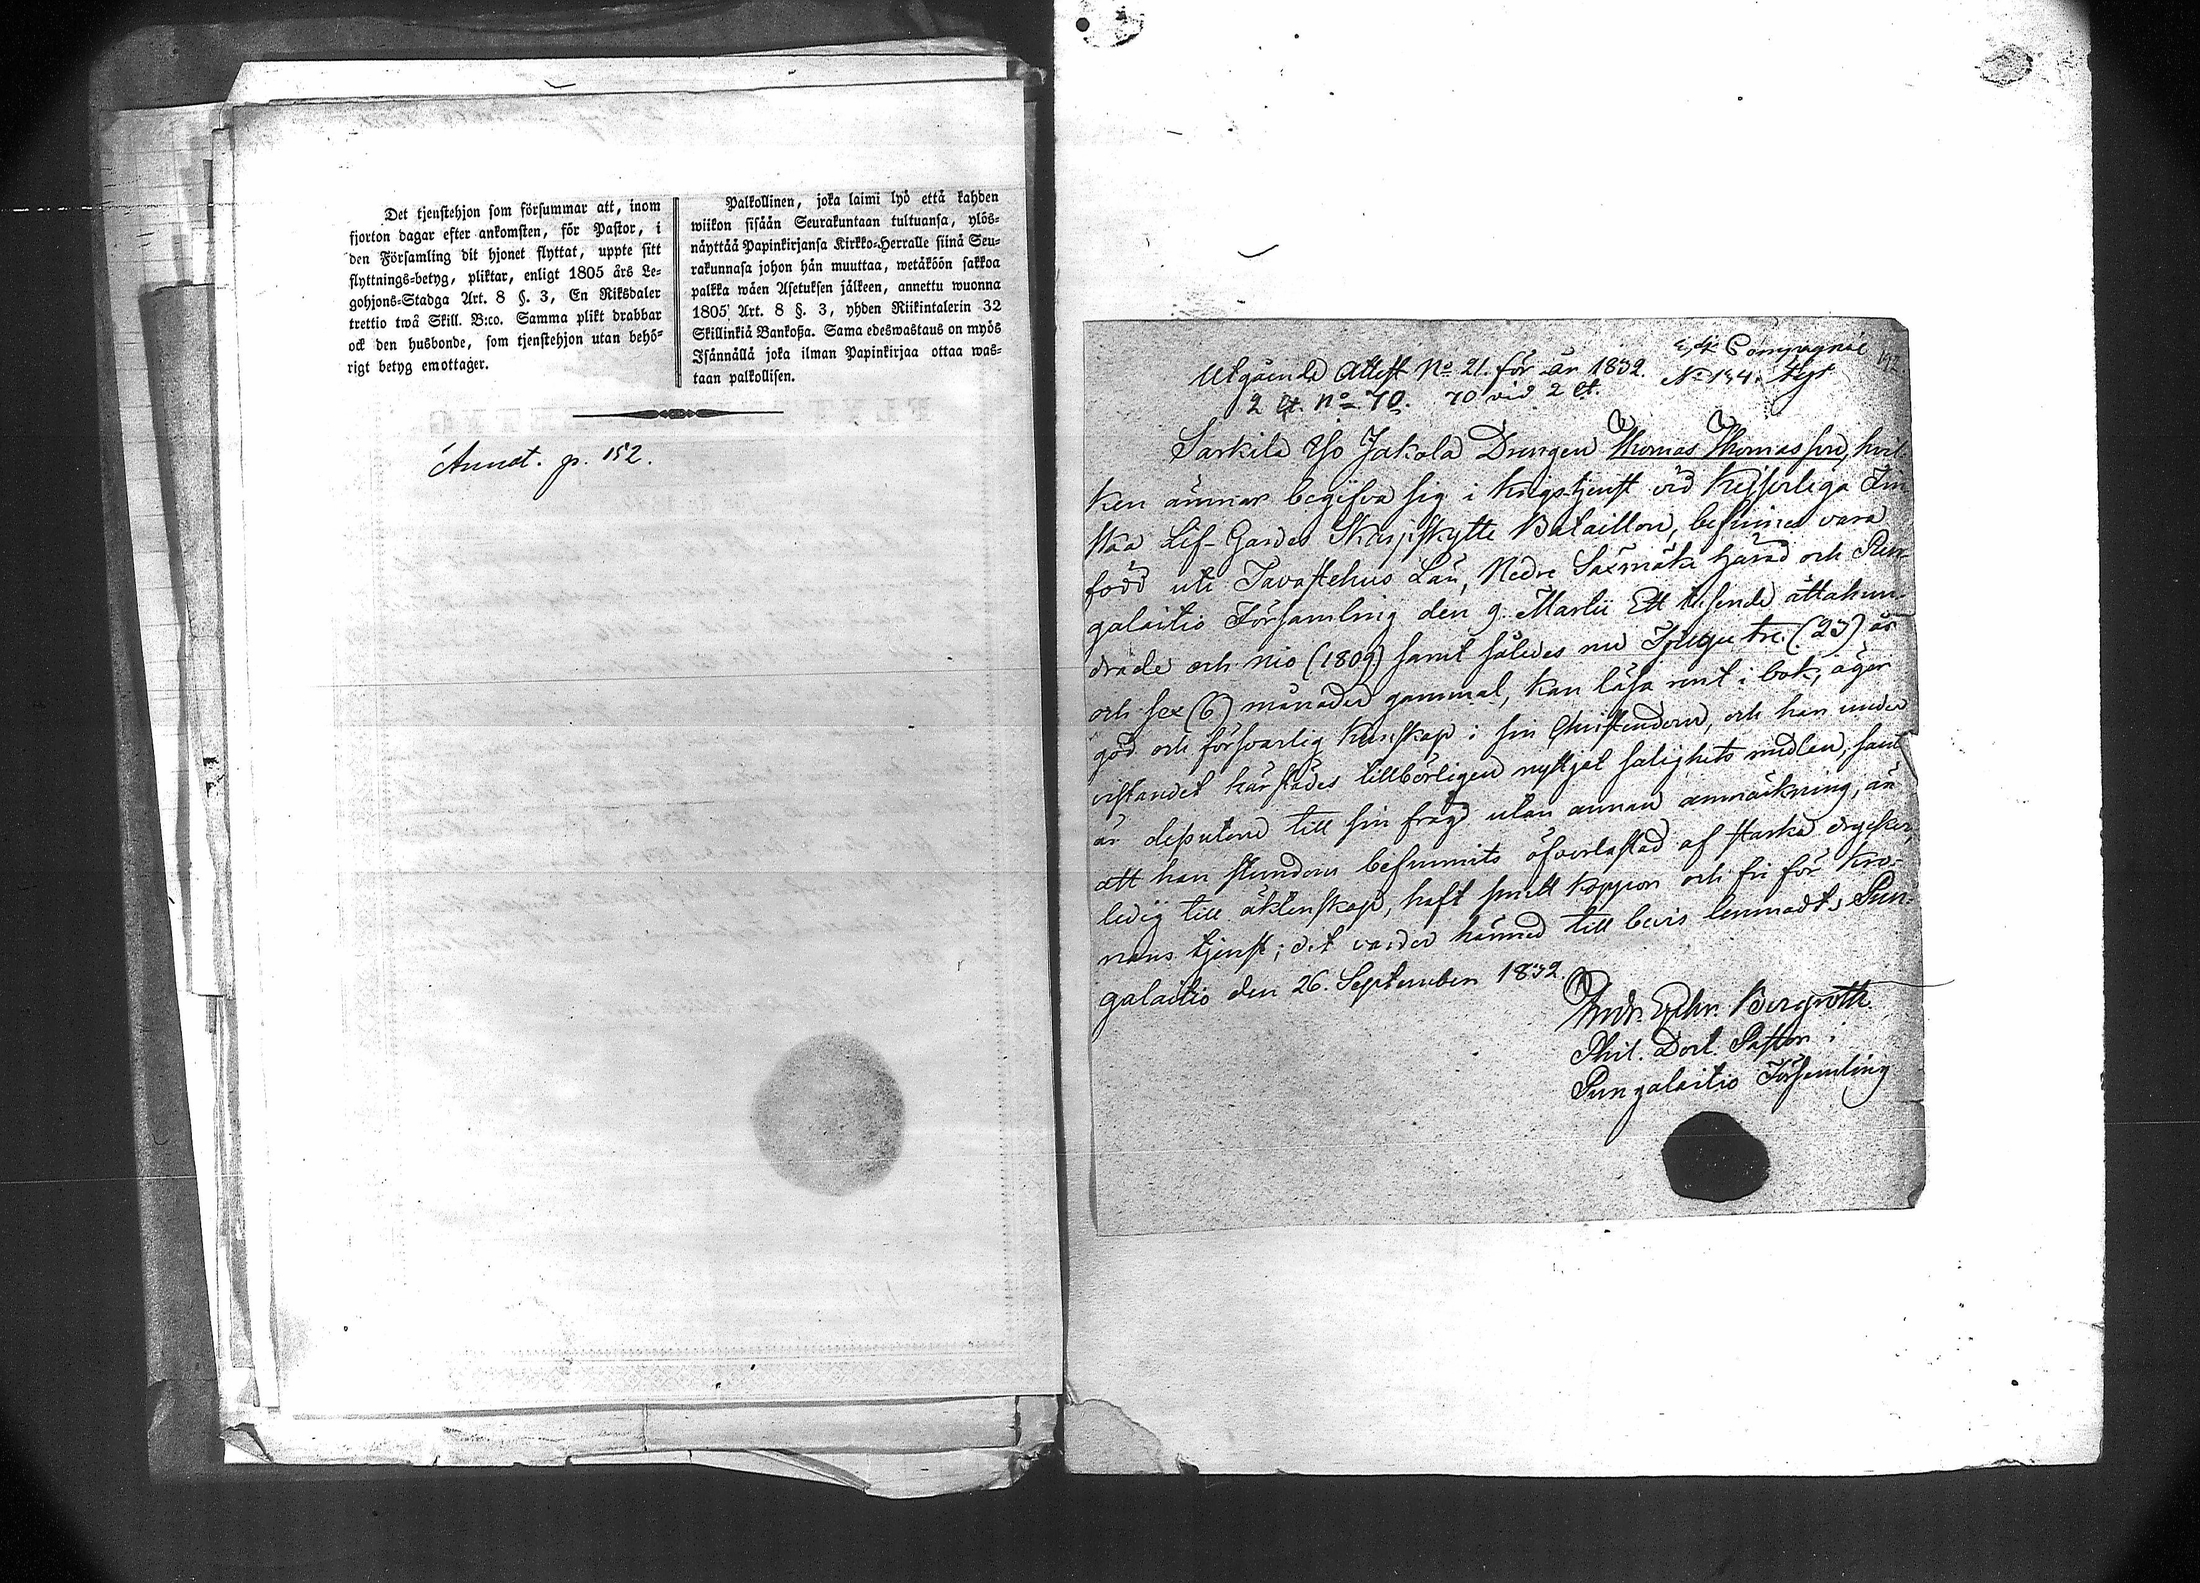 Det tjenstehjon som försummar att, inom
fjorton dagar efter ankomsten, för Pastor, i
den Församling dit hjonet flyttat, uppte sitt
flyttnings-betyg, pliktar, enligt 1805 års Le-
gohjons-Stadga Art. 8 §. 3, En Riksdaler
trettio twå Skill. B:co. Samma plikt drabbar
ock den husbonde, som tjenstehjon utan behö-
rigt betyg emottager.
Palkollinen, joka laimi lyö että kahden
wiikon sisään Seurakuntaan tultuansa, ylös-
näyttää Papinkirjansa Kirkko-Herralle siinä Seu-
rakunnasa johon hän muuttaa, wetäköön sakkoa
palkka wäen Asetuksen jälkeen, annettu wuonna
1805 Art. 8 §. 3, yhden Riikintalerin 32
Skillinkiä Bankoßa. Sama edeswastaus on myös
Isännällä joka ilman Papinkirjaa ottaa was-
taan palkollisen.
Annot. p. 152.
Compagnie
Utgående Attest No 21. för år 1832. No 134.
2 no 70. 70 vid 2
Sarkila Yso Jakola Drengen Thomas Thomasson, hvil-
ken ämnar begifva sig i krigstjenst vid Kejserliga Fin-
ska Lif-Gardes Skarpskytte Bataillon, befinnes vara
född uti Tavastehus Län, Nedre Saxmäki härad och Pun-
galaitio Församling den 9. Martii Ett tusende åttahun-
drade och nio (1809) samt således nu Tjugu tre (23) år
och sex (6) månader gammal, kan läsa rent i bok, äger
god och försvarlig kunskap i sin Christendom, och har under
vistandet härstädes tillbörligen nyttjat salighets medlen, samt
är till sin frägd utan annan anmärkning, än
att han stundom befunnits öfverlastad af starka drycker,
ledig till äktenskap, haft koppor och fri för Kro-
nans tjenst; det varder härmed till bevis lemnadt. Pun-
galaitio den 26. September 1832.
Andr. Bergroth
Phil. Doct. Pastor i
Pungalaitio Församling